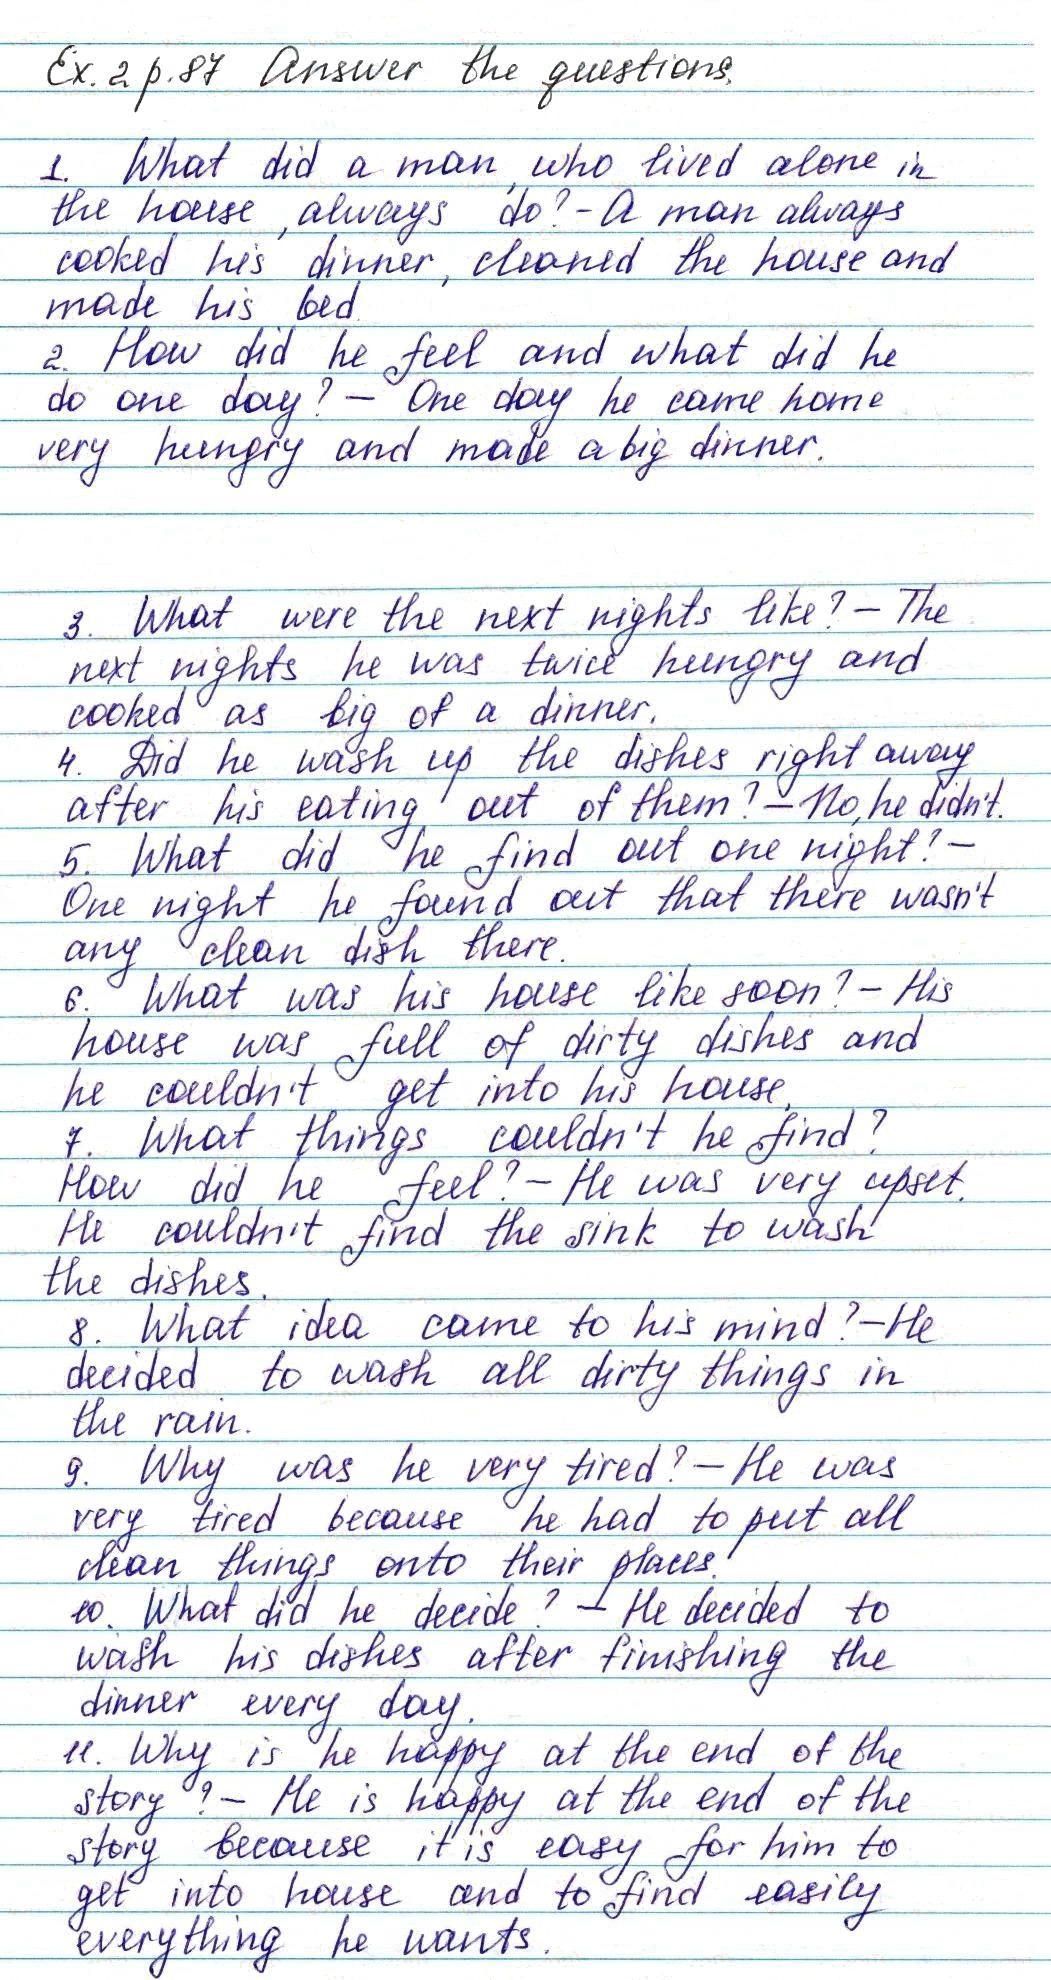 Ex. 2 p. 87 Answer the questions.
1. What did a man, who lived alone in
the house, always do? - A man always
cooked his dinner, cleaned the house and
made his bed.
2. How did he feel and what did he
do one day? - One day he came home
very hungry and made a big dinner.
3. What were the next nights like? - The
next nights he was twice hungry and
cooked as big of a dinner.
4. Did he wash up the dishes right away
after his eating out of them? - No, he didn't.
5. What did he find out one night? -
One night he found out that there wasn't
any clean dish there.
6. What was his house like soon? - His
house was full of dirty dishes and
he couldn't get into his house.
7. What things couldn't he find?
How did he feel? - He was very upset.
He couldn't find the sink to wash
the dishes.
8. What idea came to his mind? - He
decided to wash all dirty things in
the rain.
9. Why was he very tired? - He was
very tired because he had to put all
clean things onto their places.
10. What did he decide? - He decided to
wash his dishes after finishing the
dinner every day.
11. Why is he happy at the end of the
story? - He is happy at the end of the
story because it is easy for him to
get into house and to find easily
everything he wants.